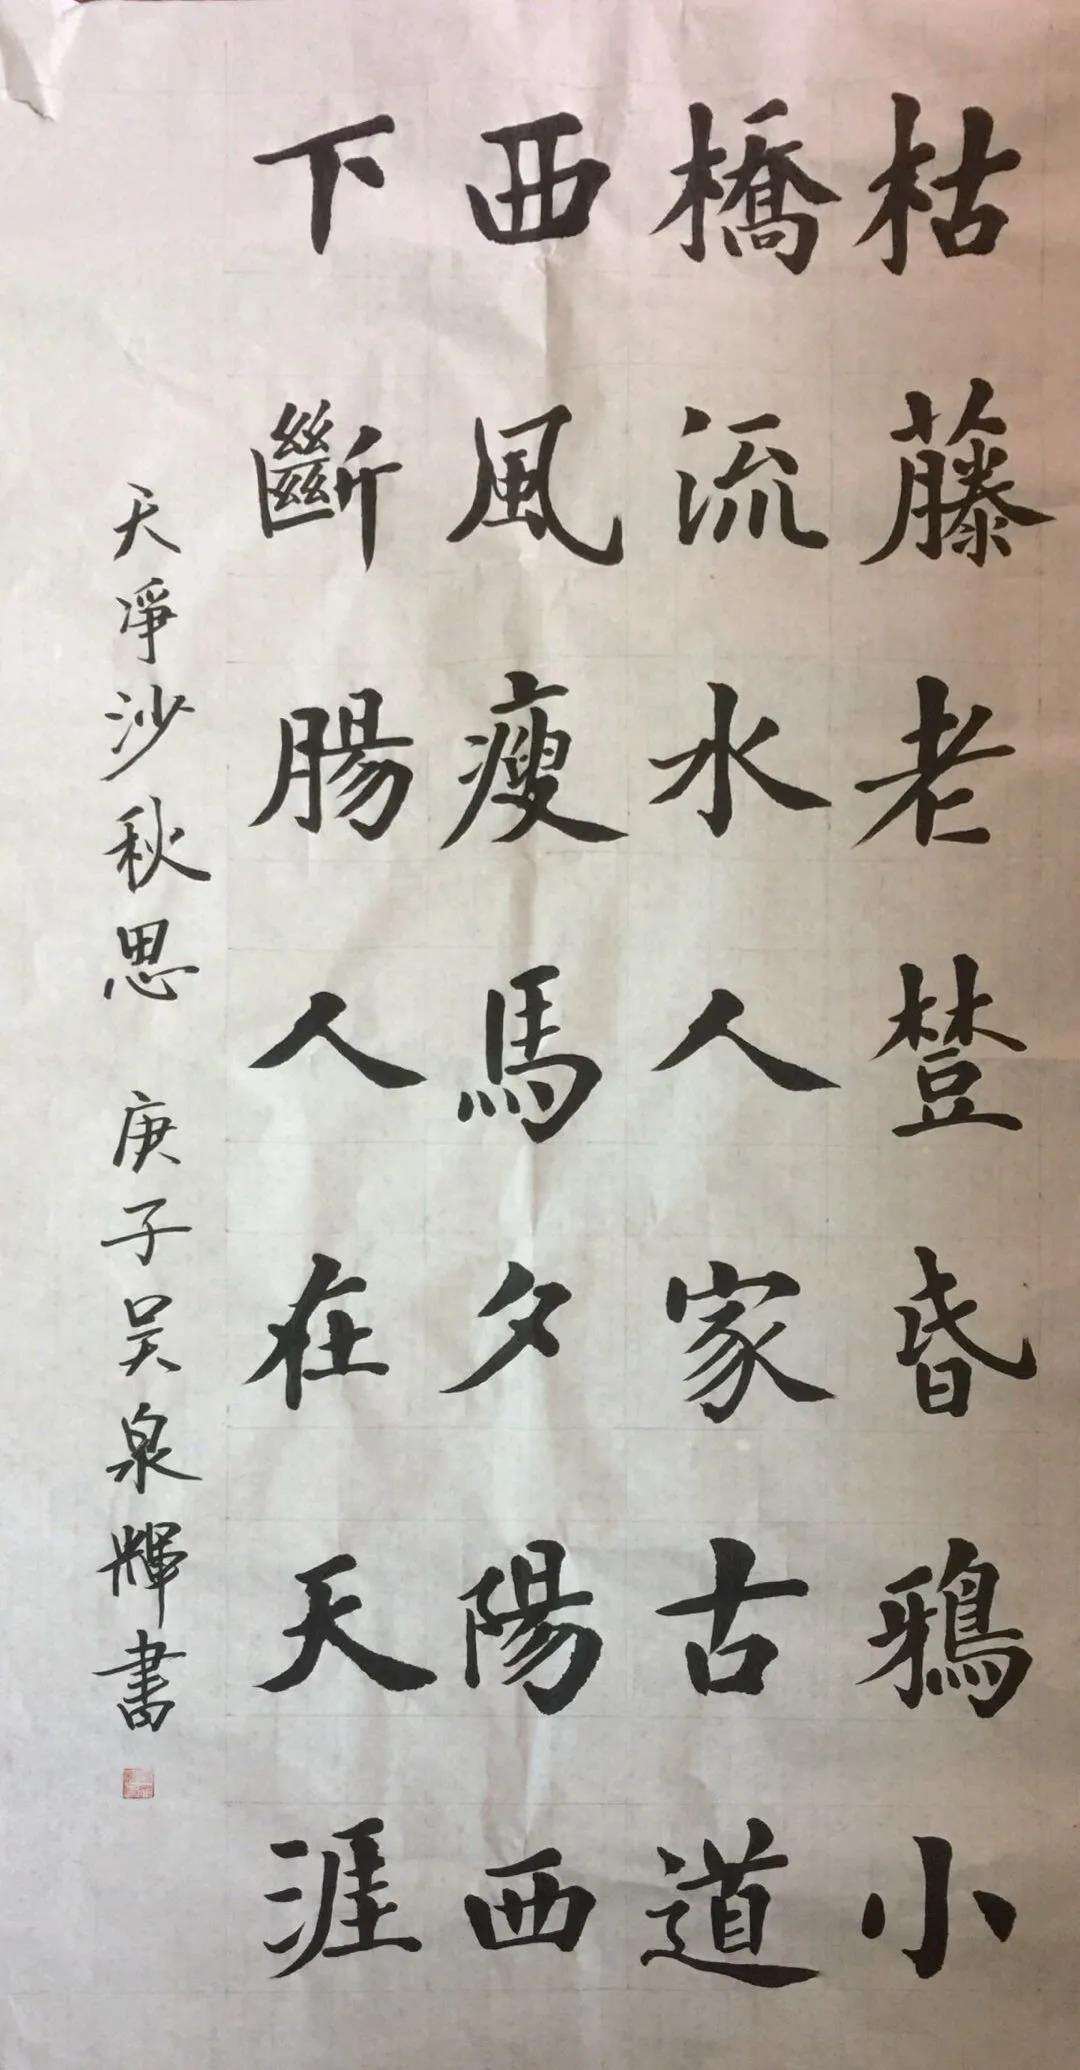 枯藤老樹昏鴉小
橋流水人家古道
西風瘦馬夕陽西
下斷腸人在天涯
天凈沙秋思 庚子吴泉輝書